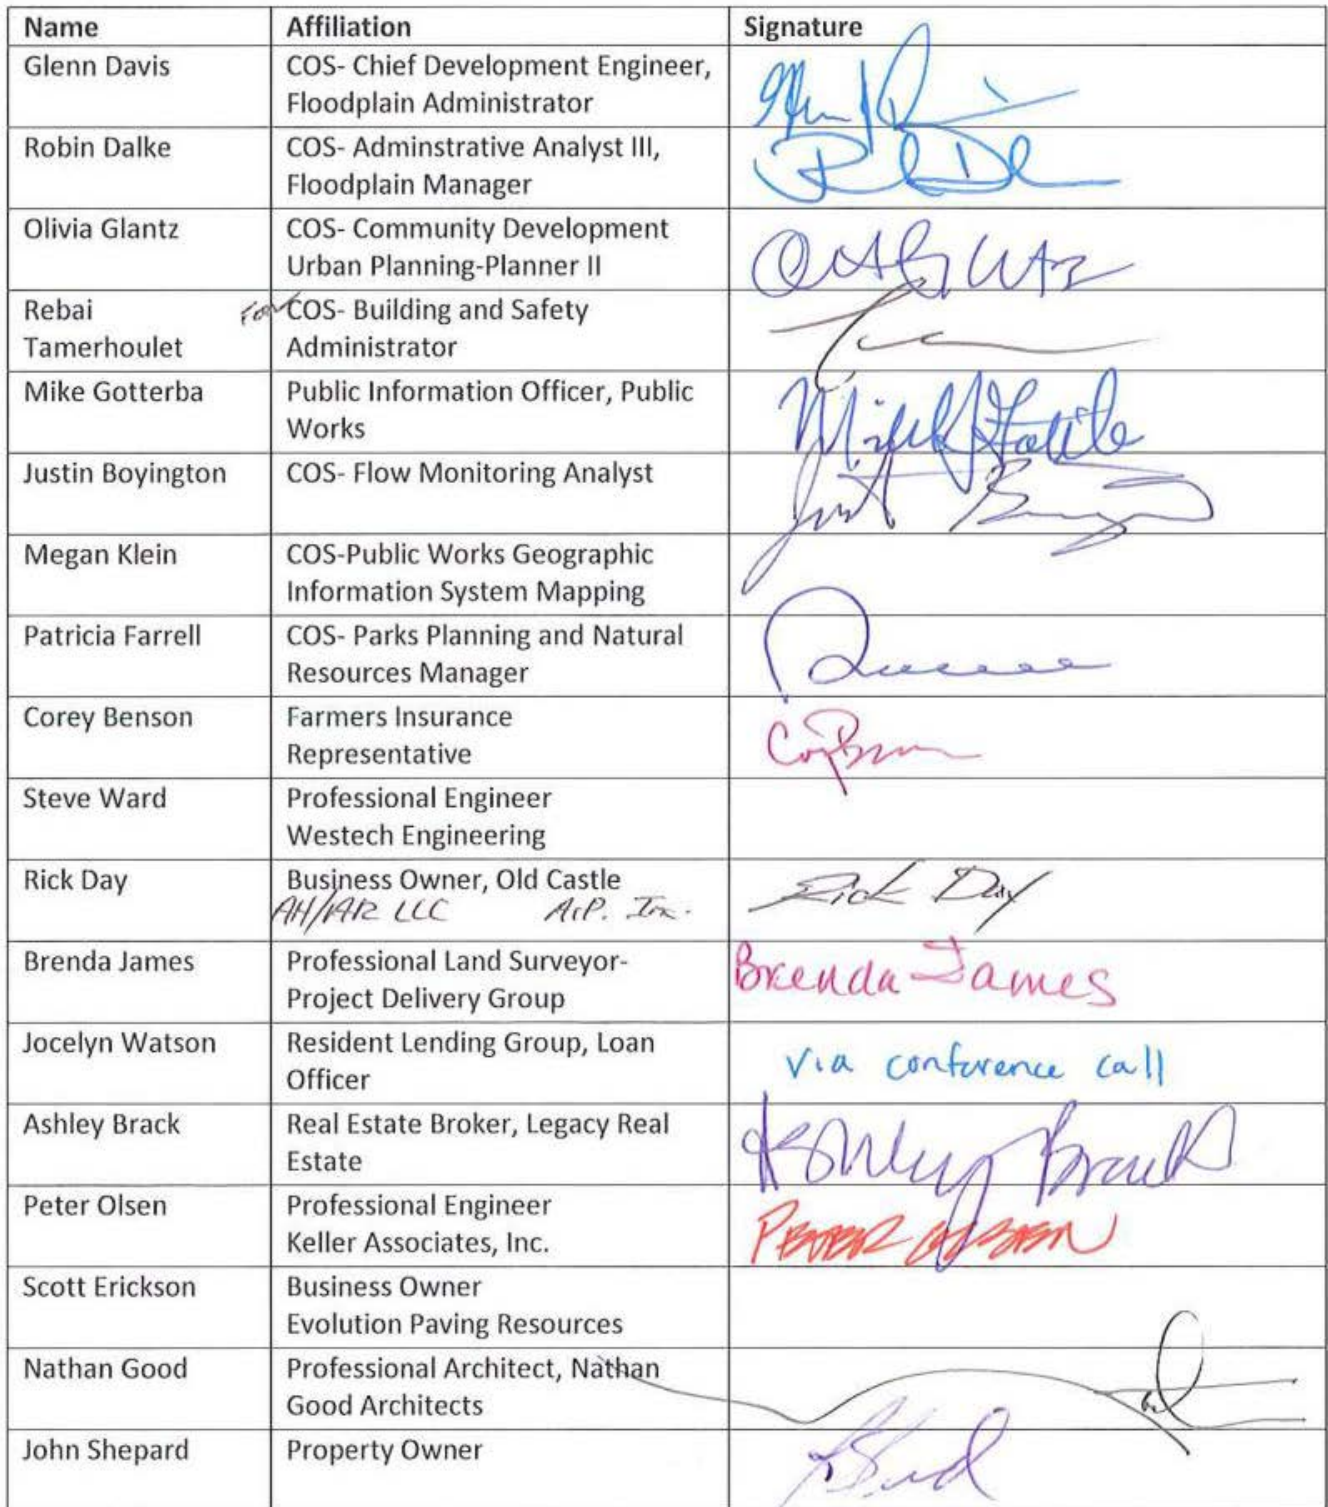 Name Affiliation Signature
Glenn Davis COS- Chief Development Engineer,
Floodplain Administrator
Robin Dalke COS- Adminstrative Analyst III,
Floodplain Manager
Olivia Glantz COS- Community Development
Urban Planning-Planner II
Rebai For COS- Building and Safety
Tamerhoulet Administrator
Mike Gotterba Public Information Officer, Public
Works
Justin Boyington COS- Flow Monitoring Analyst
Megan Klein COS-Public Works Geographic
Information System Mapping
Patricia Farrell COS- Parks Planning and Natural
Resources Manager
Corey Benson Farmers Insurance
Representative
Steve Ward Professional Engineer
Westech Engineering
Rick Day Business Owner, Old Castle Rick Day
AH/AR LLC Inc.
Brenda James Professional Land Surveyor- Brenda James
Project Delivery Group
Jocelyn Watson Resident Lending Group, Loan via conference call
Officer
Ashley Brack Real Estate Broker, Legacy Real Ashley Brack
Estate
Peter Olsen Professional Engineer PETER OLSEN
Keller Associates, Inc.
Scott Erickson Business Owner
Evolution Paving Resources
Nathan Good Professional Architect, Nathan
Good Architects
John Shepard Property Owner